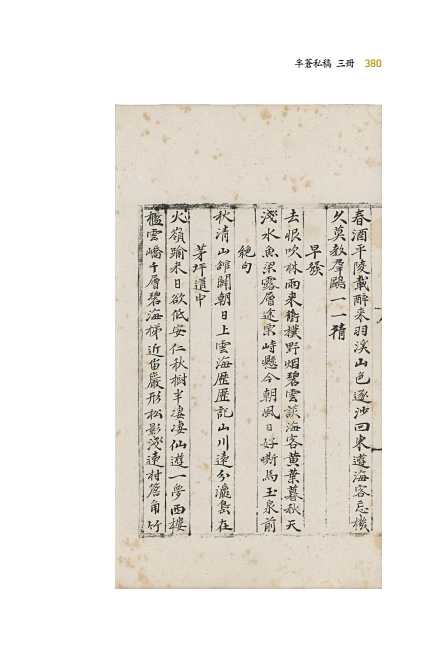 半蒼私稿 三冊 380
春酒平陵載醉來羽溪山色逐沙回東遊海客忘機
久莫教羣鷗一一猜
早發
去恨吹林雨來衝撲野烟碧雲談海客黃葉暮秋天
淺水魚梁露層途宗峙懸今朝風日好嘶馬玉泉前
絕句
秋清山舘開朝日上雲海歷歷記山川遠分瀛島在
茅坪道中
火嶺踰來日欲低安仁秋樹半淒淒仙遊一夢西樓
檻雲嶠千層碧海梯近宙巖形松影淺遠村簷角竹